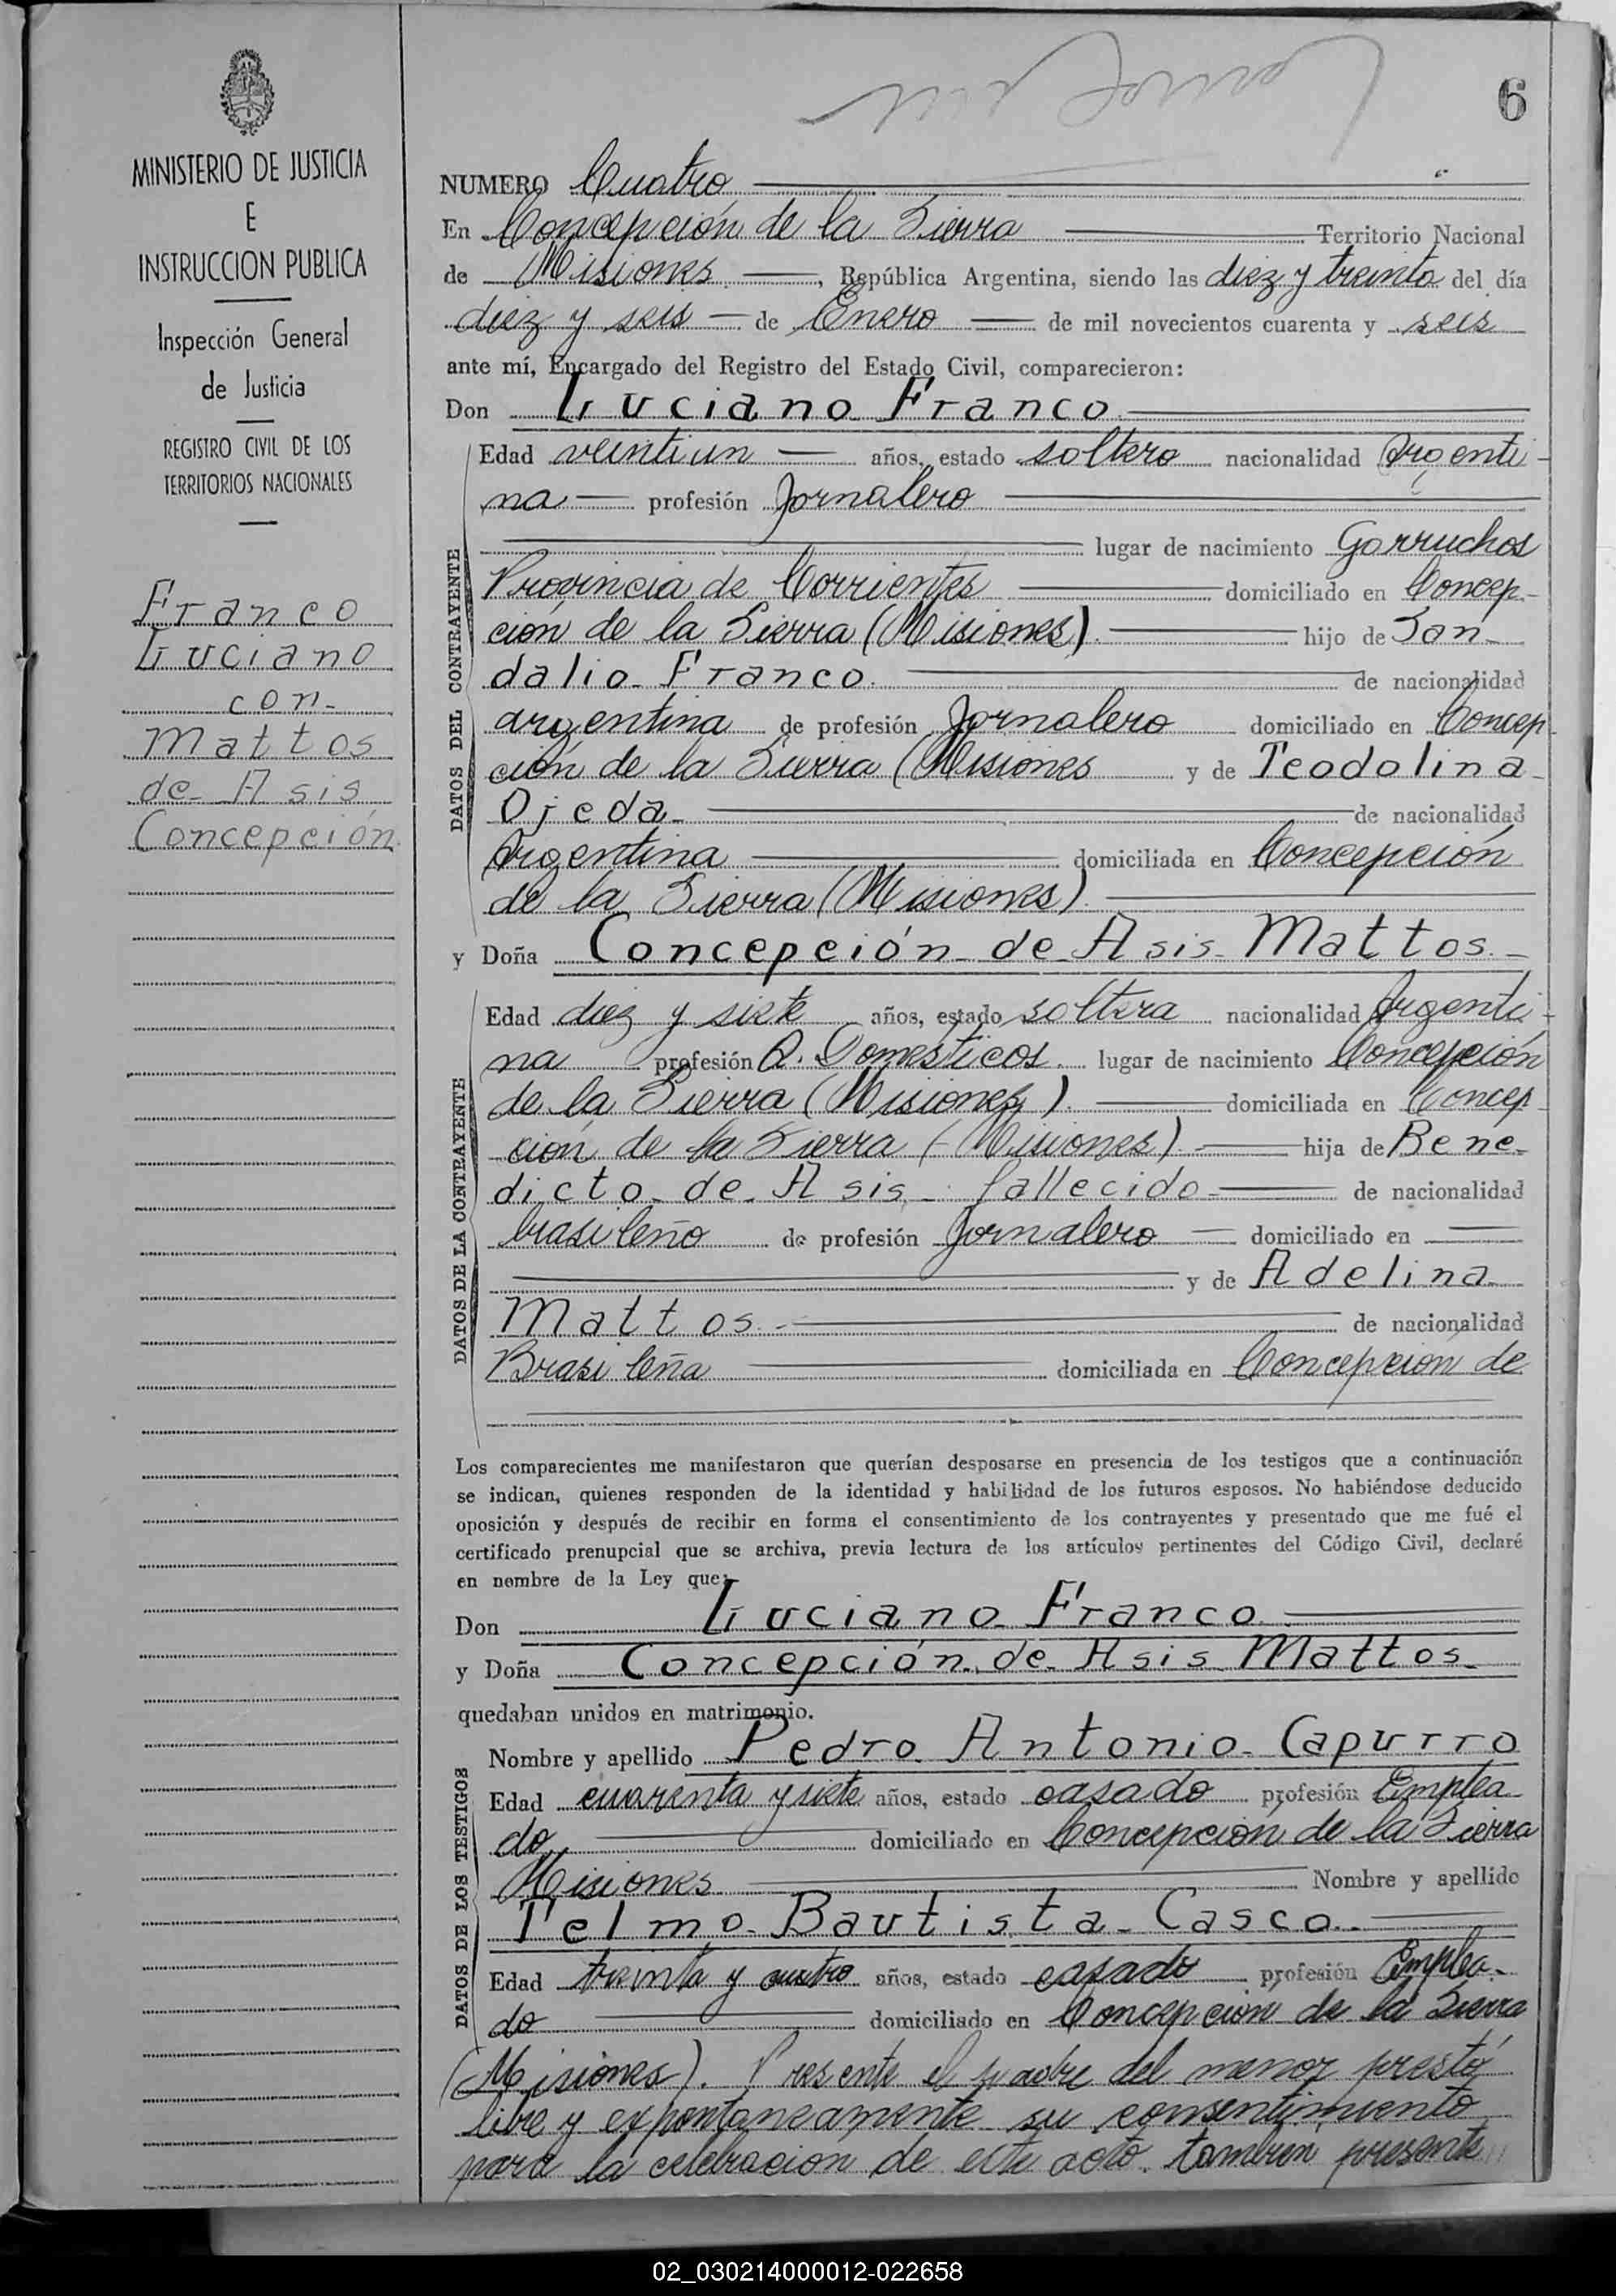 MINISTERIO DE JUSTICIA
E
INSTRUCCION PUBLICA
Inspección General
de Justicia
REGISTRO CIVIL DE LOS
TERRITORIOS NACIONALES
Franco
Luciano
con
Mattos
de Asis
Concepción
6
NUMERO Cuatro
En Concepción de la Sierra Territorio Nacional
de Misiones, República Argentina, siendo las diez y treinta del día
diez y seis de Enero de mil novecientos cuarenta y seis
ante mí, Encargado del Registro del Estado Civil, comparecieron:
Don Luciano Franco
DATOS DEL CONTRAYENTE
Edad veintiun años, estado soltero nacionalidad Argenti-
na profesión Jornalero
lugar de nacimiento Garruchos
Provincia de Corrientes domiciliado en Concep-
ción de la Sierra (Misiones) hijo de San-
dalio Franco de nacionalidad
argentina de profesión Jornalero domiciliado en Concep
ción de la Sierra (Misiones y de Teodolina
Ojeda de nacionalidad
Argentina domiciliada en Concepción
de la Sierra (Misiones)
y Doña Concepción de Asis Mattos
DATOS DE LA CONTRAYENTE
Edad diez y siete años, estado soltera nacionalidad Argenti-
na profesión Q. Domésticos lugar de nacimiento Concepción
de la Sierra (Misiones) domiciliada en Concep
ción de la Sierra (Misiones) hija de Bene-
dicto de Asis fallecido de nacionalidad
brasileño de profesión Jornalero domiciliado en
y de Adelina
Mattos de nacionalidad
Brasileña domiciliada en Concepción de
Los comparecientes me manifestaron que querían desposarse en presencia de los testigos que a continuación
se indican, quienes responden de la identidad y habilidad de los futuros esposos. No habiéndose deducido
oposición y después de recibir en forma el consentimiento de los contrayentes y presentado que me fué el
certificado prenupcial que se archiva, previa lectura de los artículos pertinentes del Código Civil, declaré
en nombre de la Ley que:
Don Luciano Franco
y Doña Concepción de Asis Mattos
quedaban unidos en matrimonio.
DATOS DE LOS TESTIGOS
Nombre y apellido Pedro Antonio Capurro
Edad cuarenta y siete años, estado casado profesión Emplea
do domiciliado en Concepción de la Sierra
Misiones Nombre y apellido
Telmo Bautista Casco
Edad treinta y cuatro años, estado casado profesión Emplea-
do domiciliado en Concepción de la Sierra
(Misiones). Presente el padre del menor prestó
libre y expontaneamente su consentimiento
para la celebracion de este acto. tambien presente
02_030214000012-022658